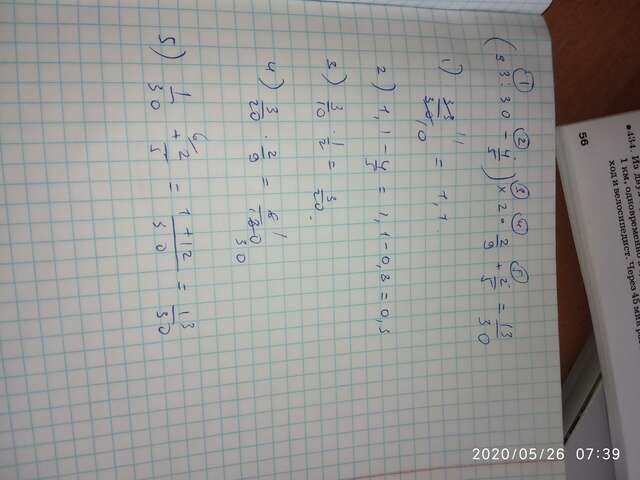 ① ② ③ ④ ⑤
(33 : 30 - 4/5) × 2 · 2/9 + 2/5 = 13/30
1) 33/30 11/10 = 1,1
2) 1,1 - 4/5 = 1,1 - 0,8 = 0,3
3) 3/10 · 1/2 = 3/20.
4) 3/20 · 2/9 = 6/180 1/30
5) 1/30 + 2/5 6 = 1+12/30 = 13/30
56
•434. Из
1 км, одновременно
ход и велосипедист. Через 45 мин
2020/05/26 07:39